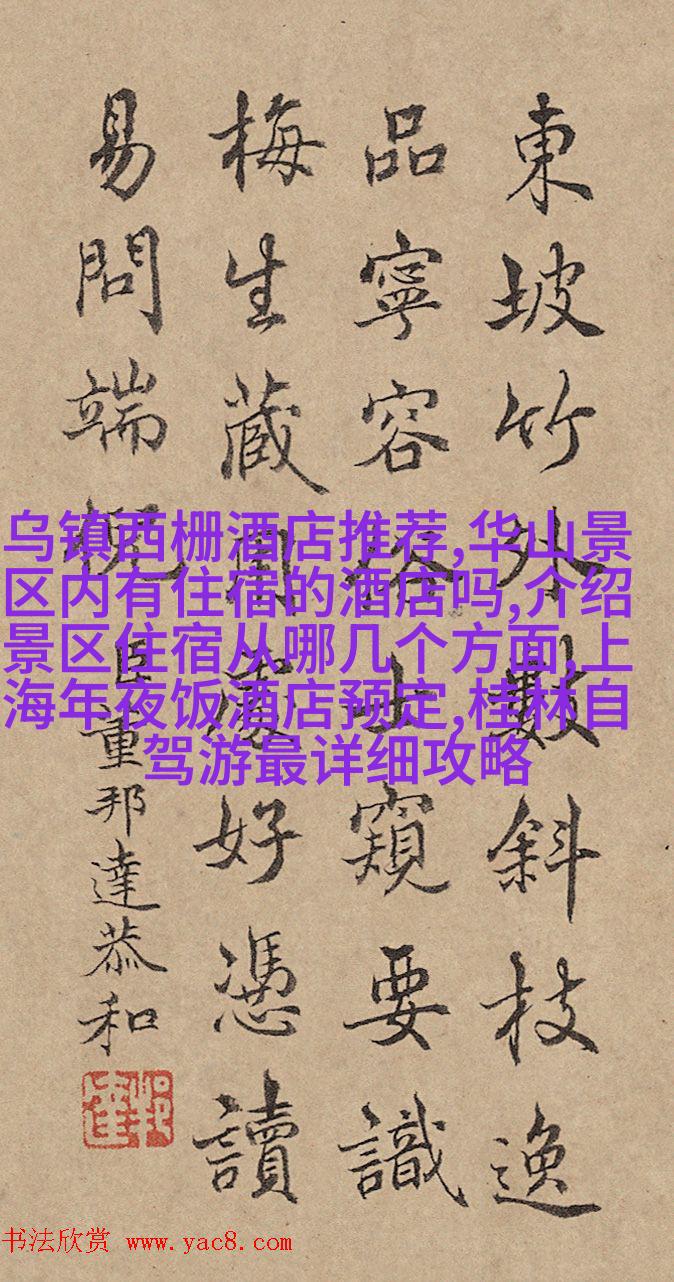 東坡竹外數斜枝逸
品寧容俗士窺要識
梅生藏好憑讀
易問端
臣董邦達恭和
乌镇西栅酒店推荐,华山景
区内有住宿的酒店吗,介绍
景区住宿从哪几个方面,上
海年夜饭酒店预定,桂林自
驾游最详细攻略
书法欣赏 www.yac8.com